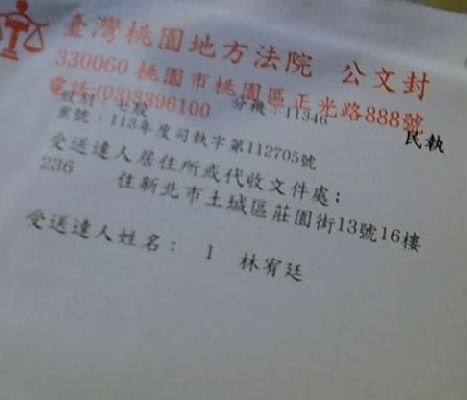 臺灣桃園地方法院 公文封
330060 桃園市桃園區正光路888號
電話:(03)3396100
股別:七股 分機:11346
民執
案號:113年度司執字第112705號
受送達人居住所或代收文件處:
236 住新北市土城區莊園街13號16樓
受送達人姓名: 1 林宥廷